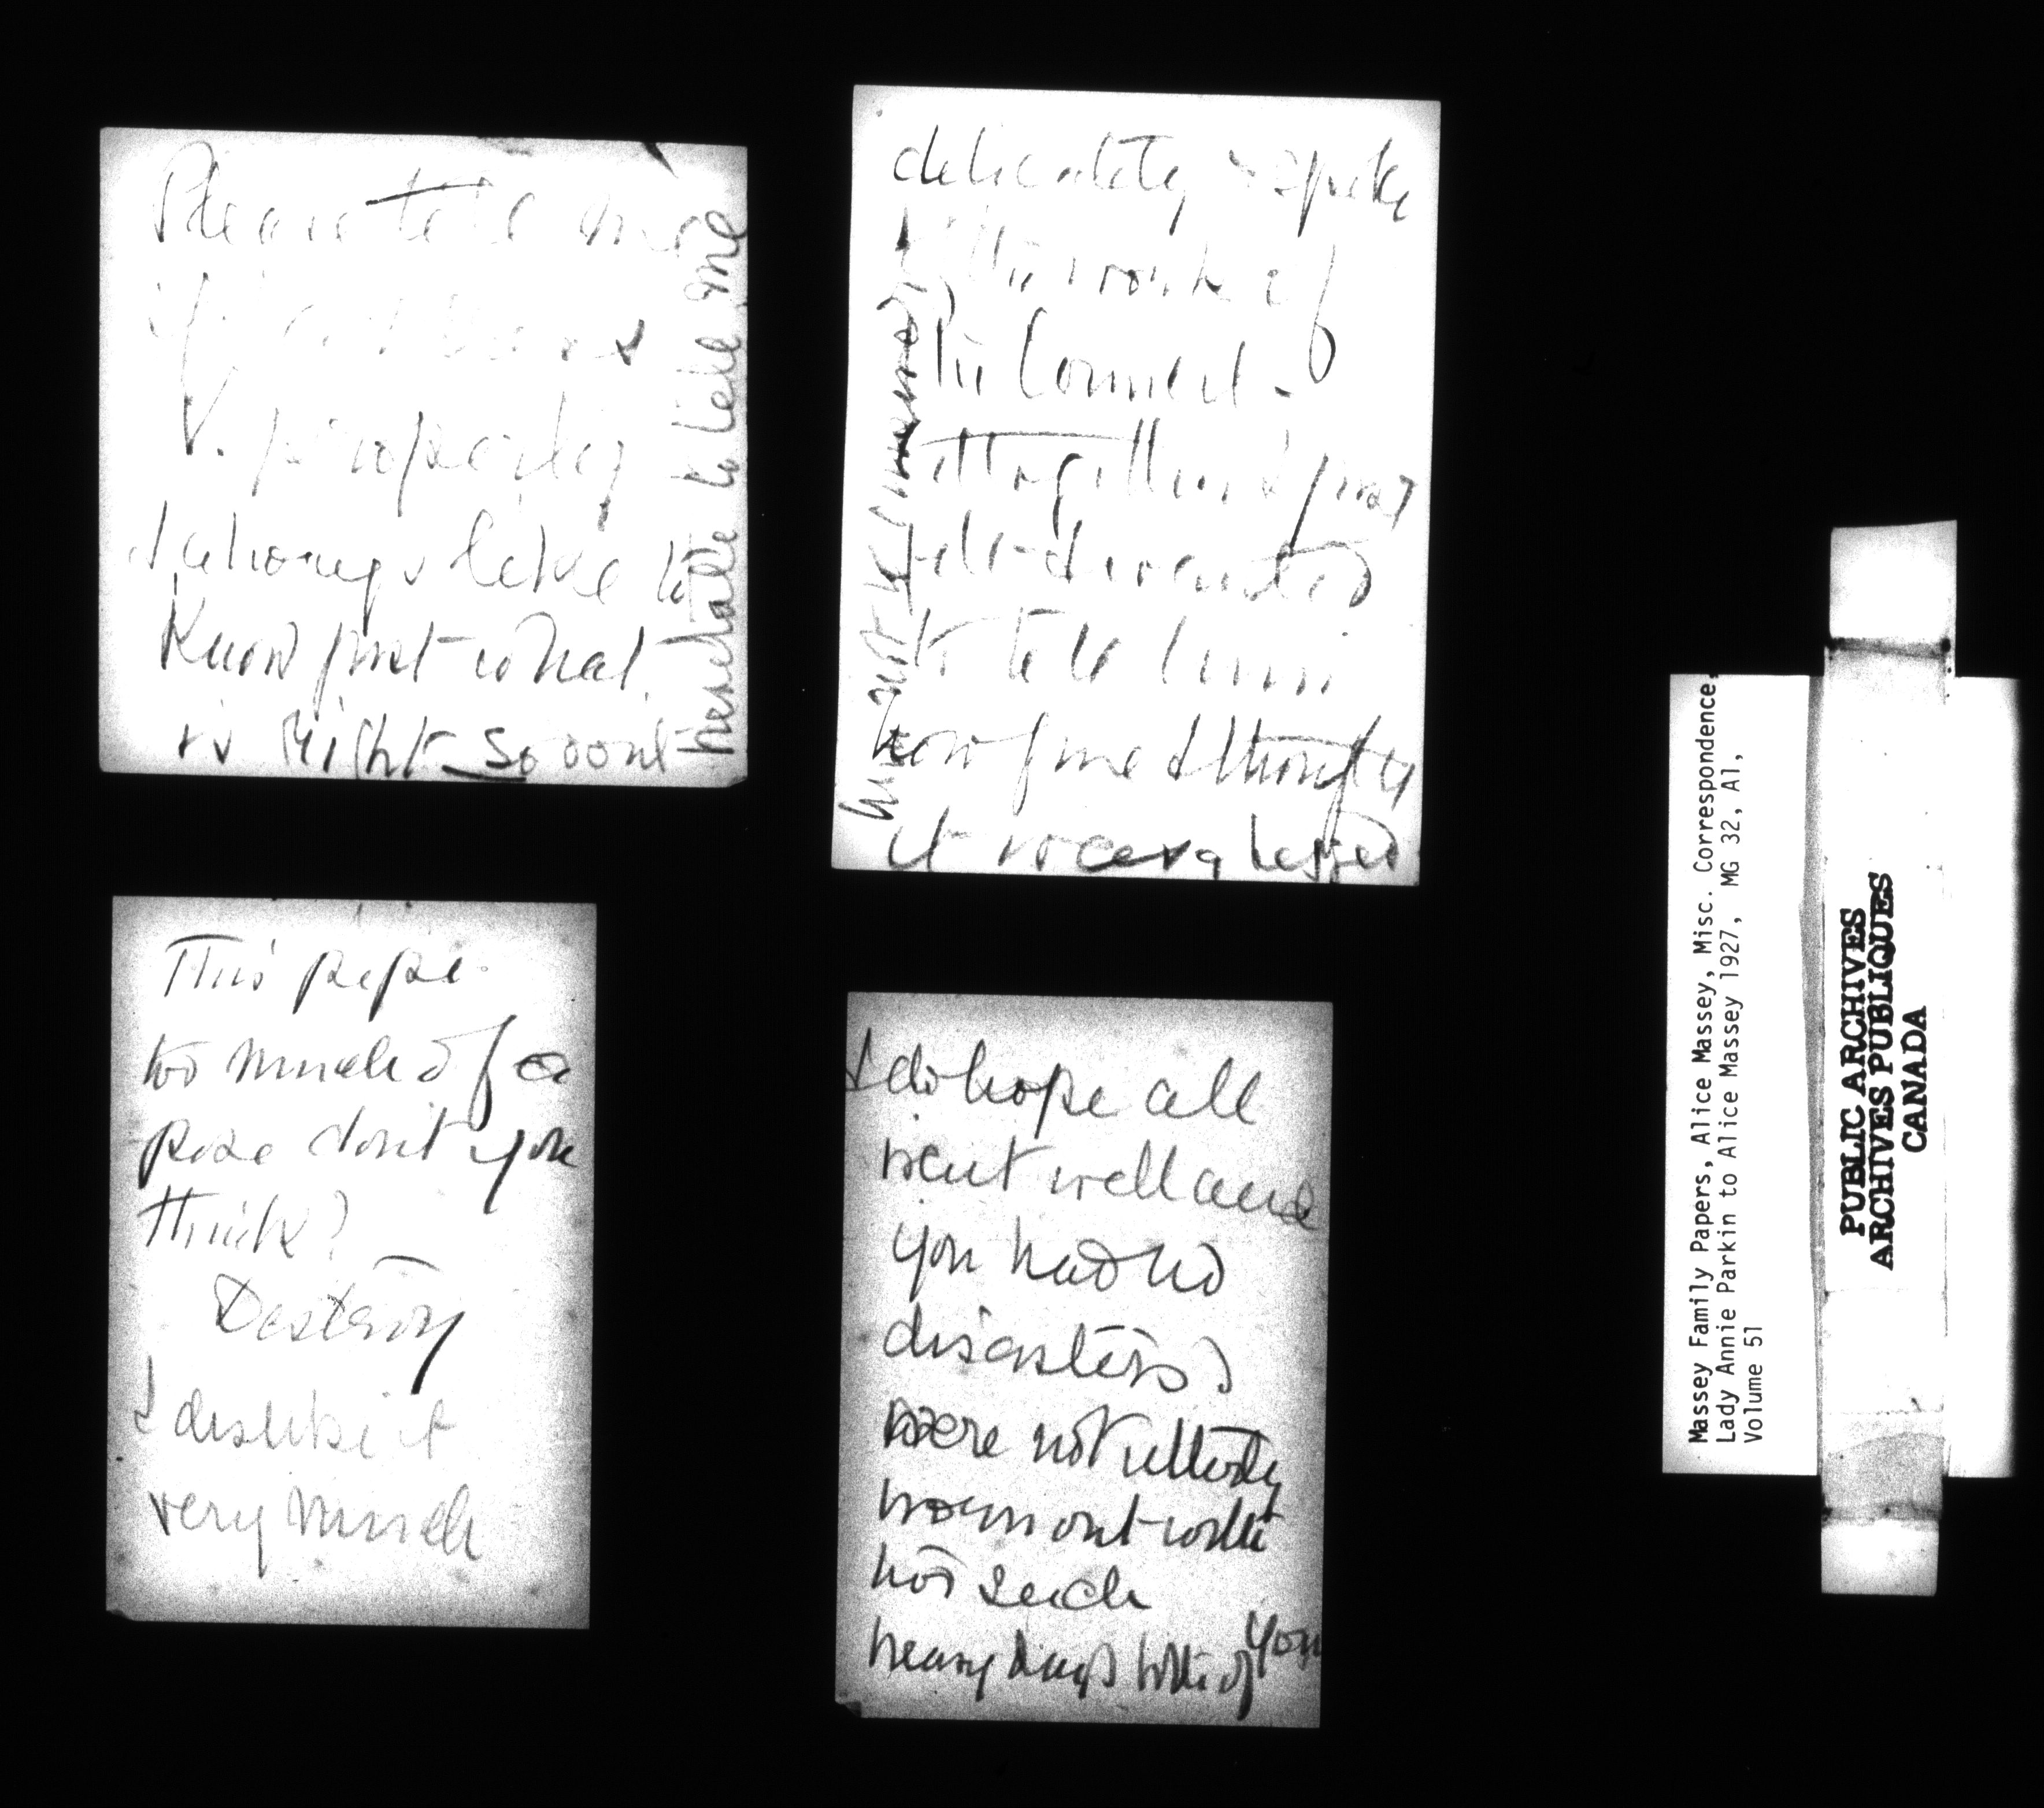 Please tell me
if
V. properly
I always like to
Know just what
is Right So dont
hesitate to tell me
delicately & spoke
work of
the Council.
Altogether I just
felt I wanted
to tell him
how fine I thought
it was
This pipe
too much of a
pose don't you
think?
Destroy
I dislike it
very much
I do hope all
went well and
you had no
disasters &
were not utterly
worn out with
two such
heavy days both of you
Massey Family Papers, Alice Massey, Misc. Correspondence,
Lady Annie Parkin to Alice Massey 1927, MG 32, A1,
Volume 51
PUBLIC ARCHIVES
ARCHIVES PUBLIQUES
CANADA